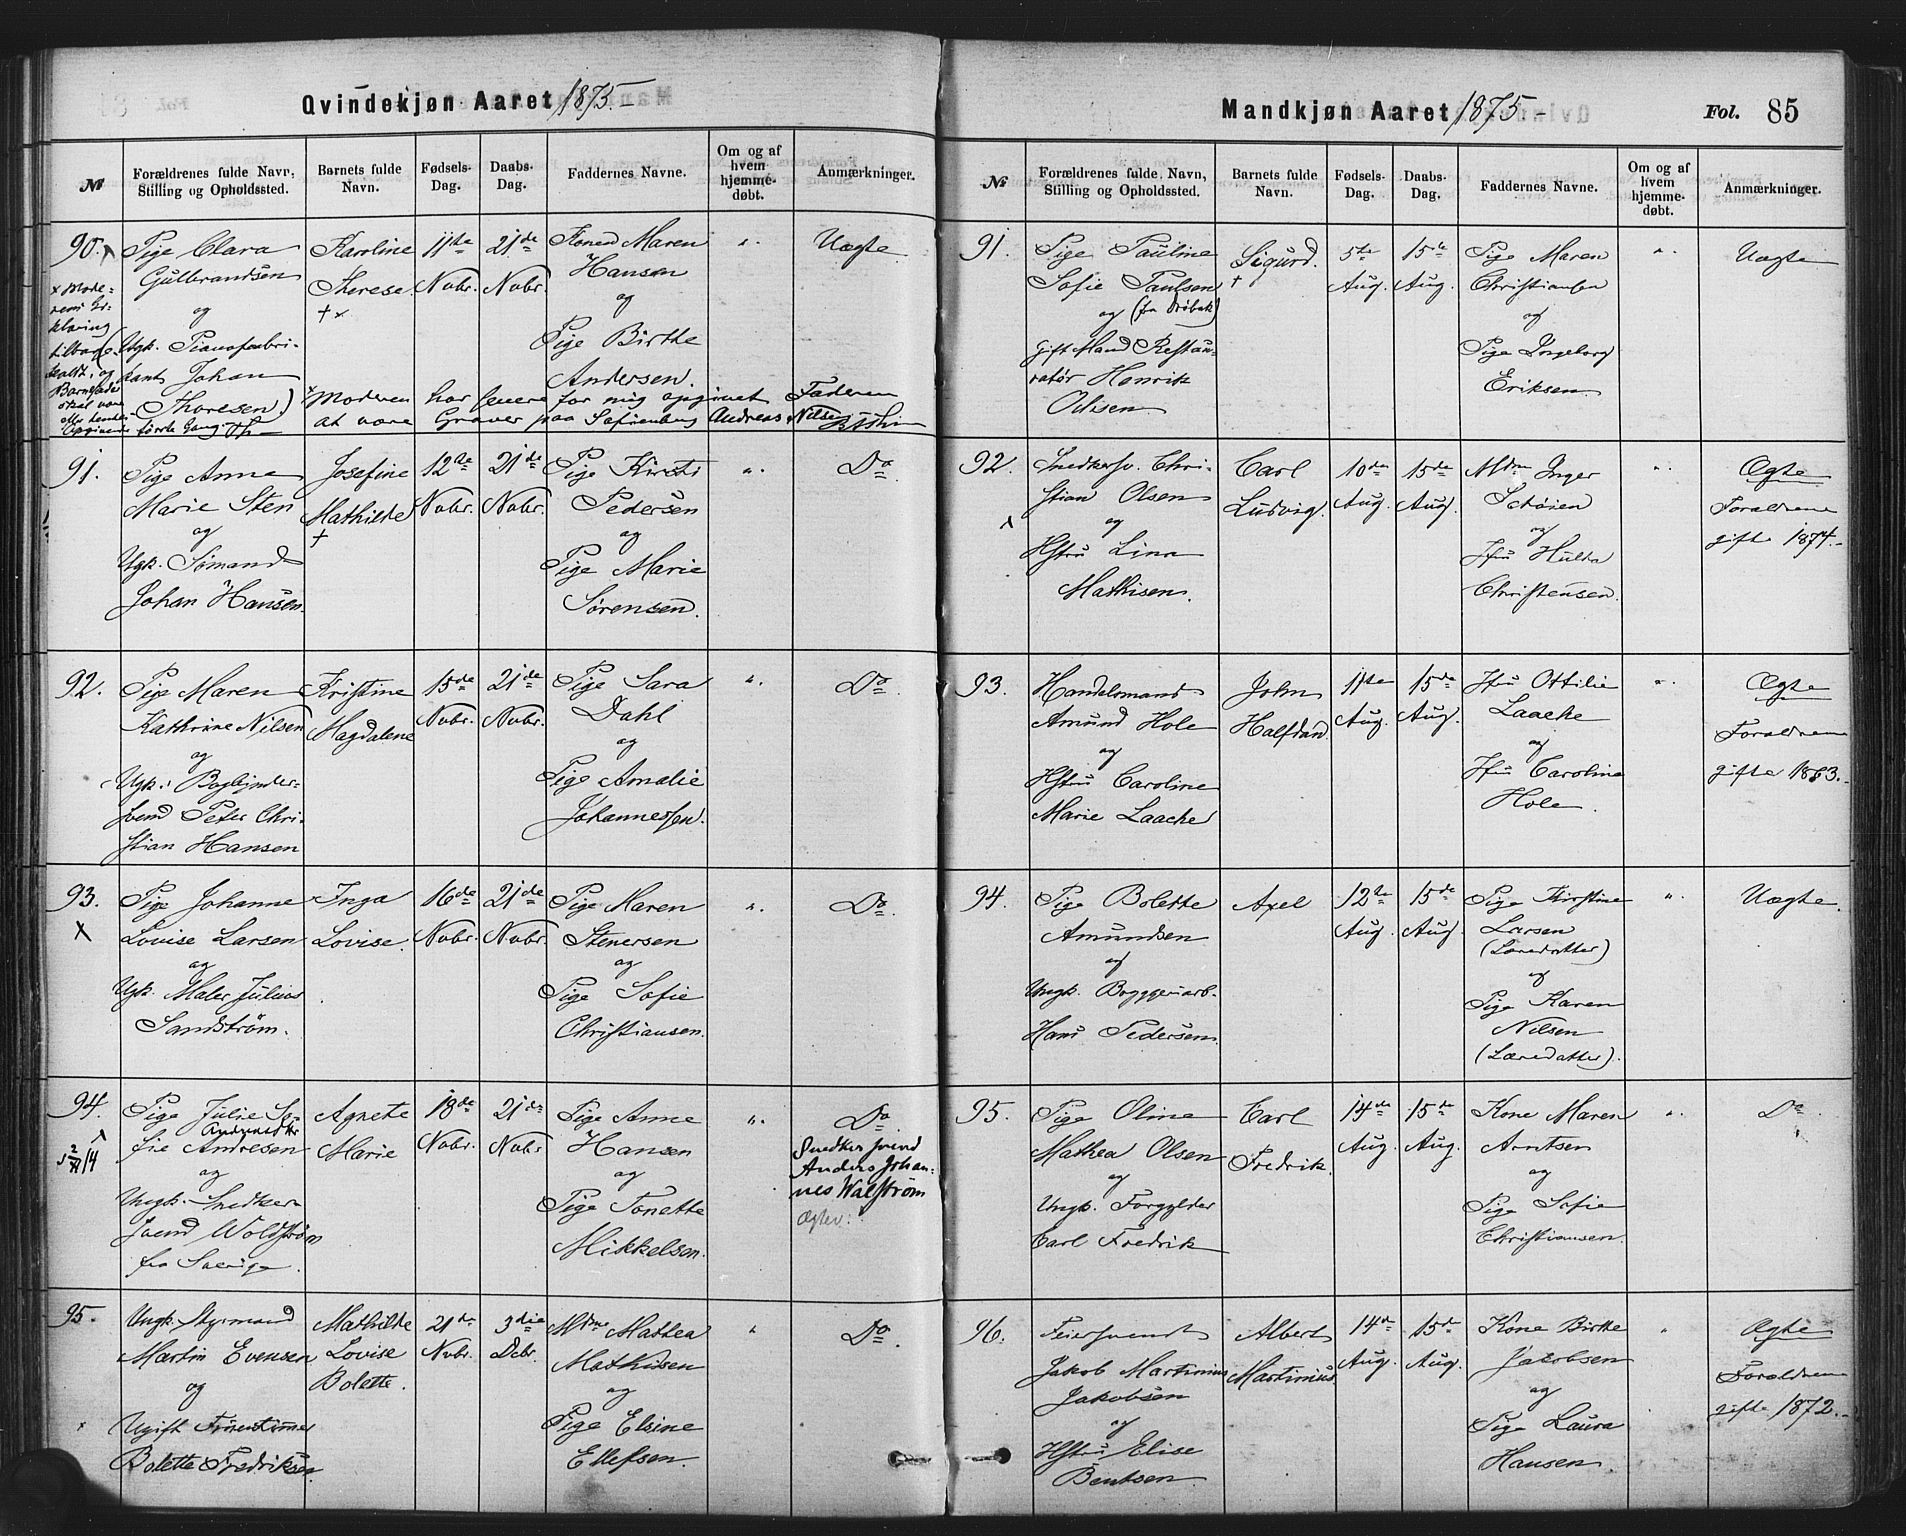 Qvindekjøn Aaret 1875.
№
Forældrenes fulde Navn,
Stilling og Opholdssted.
Barnets fulde
Navn.
Fødsels-
Dag.
Daabs-
Dag.
Faddernes Navne.
Om og af
hvem
hjemme-
døbt.
Anmærkninger.
90.
Pige Clara
Gulbrandsen
og
Ugk. Pianofabri-
kant Johan
Thoresen
Karoline
Therese.
† x
11te
Novbr.
21de
Novbr.
Maren
Hansen
og
Pige Birthe
Andersen.
".
Uægte.
x Moderen har senere for mig opgivet Faderen
at være Graver paa Sofienberg Andreas Nilsen
91.
Pige Anne
Marie Sten
og
Ugk. Sømand
Johan Hansen.
Josefine
Mathilde
†
12te
Novbr.
21de
Novbr.
Pige Kirsti
Pedersen
og
Pige Marie
Sørensen.
".
Do.
92.
Pige Maren
Kathrine Nilsen
og
Ugk. Bogbinder-
svend Peter Chri-
stian Hansen
Kristine
Magdalene
15de
Novbr.
21de
Novbr.
Pige Sara
Dahl
og
Pige Amalie
Johannessen.
".
Do.
93.
x
Pige Johanne
Lovise Larsen
og
Ugk. Maler Julius
Sandstrøm.
Inga
Lovise.
16de
Novbr.
21de
Novbr.
Pige Maren
Stenersen
og
Pige Sofie
Christiansen.
".
Do.
94.
Pige Julie So-
fie Andresen
og
Ungk. Snedker-
svend Woldstrøm
fra Sverige.
Agnete
Marie
18de
Novbr.
21de
Novbr
Pige Anne
Hansen
og
Pige Tonette
Mikkelsen.
".
Do.
Snedkersvend
Anders Johan-
nes Walstrøm
95.
Ungk. Styrmand
Martin Evensen
og
Ugift
Bolette Fredriksen.
Mathilde
Lovise
Bolette.
21de
Novbr.
3die
Decbr.
Mdme Mathea
Mathisen
og
Pige Elsine
Ellefsen.
"
Do.
Mandkjøn Aaret 1875 -
Fol. 85
№
Forældrenes fulde Navn,
Stilling og Opholdssted.
Barnets fulde
Navn.
Fødsels-
Dag.
Daabs-
Dag.
Faddernes Navne.
Om og af
hvem
hjemme-
døbt.
Anmærkninger.
91.
Pige Pauline
Sofie Paulsen
og (fra Drøbak)
gift Mand Restau-
ratør Henrik
Olisen
Sigurd.
†
5te
Aug.
15de
Aug.
Pige Maren
Christiansen
og
Pige Ingeborg
Eriksen.
".
Uægte
92.
Snedkersv. Chri-
stian Olsen
og
Hstru Lina
Mathisen.
Carl
Ludvig.
10de
Aug.
15de
Aug.
Mdm Inger
Schöien
og
Jfru Hulda
Christensen.
".
Ægte
Forældrene
gifte 1874.
93.
Handelsmand
Amund Hole
og
Hstru Caroline
Marie Laache
John
Halfdan.
11te
Aug.
15de
Aug.
Jfru Ottilie
Laache
og
Jfru Caroline
Hole.
".
Ægte
Forældrene
gifte 1863.
94.
Pige Bolette
Amundsen
og
Ungk. Byggeriarb.
Hans Pedersen.
Axel
12te
Aug.
15de
Aug.
Pige Kirstine
Larsen
(Læredatter)
og
Pige Karen
Nilsen
(Læredatter).
".
Uægte.
95.
Pige Oline
Mathea Olsen
og
Ungk. Forgylder
Carl Fredrik
Carl
Fredrik.
14de
Aug.
15de
Aug.
Kone Maren
Arntsen
og
Pige Sofie
Christiansen.
".
Do
96.
Feiersvend
Jakob Martinius
Jakobsen
og
Hstru Elise
Bentsen
Albert
Martinius.
14de
Aug.
15de
Aug.
Kone Birthe
Jakobsen
og
Pige Laura
Hansen
"
Ægte
Forældrene
gifte 1872.